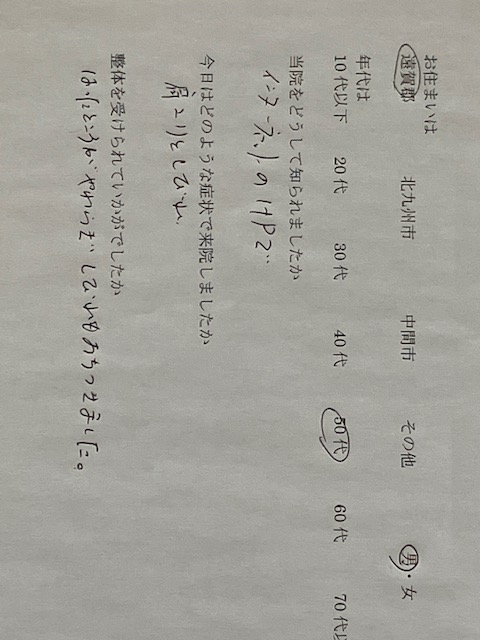 お住まいは
遠賀郡 北九州市 中間市 その他 男・女
年代は
10代以下 20代 30代 40代 50代 60代 70代以
当院をどうして知られましたか
インターネットのHPで
今日はどのような症状で来院しましたか
肩こりとしびれ
整体を受けられていかがでしたか
はったところがやわらぎしびれもおちつきました。